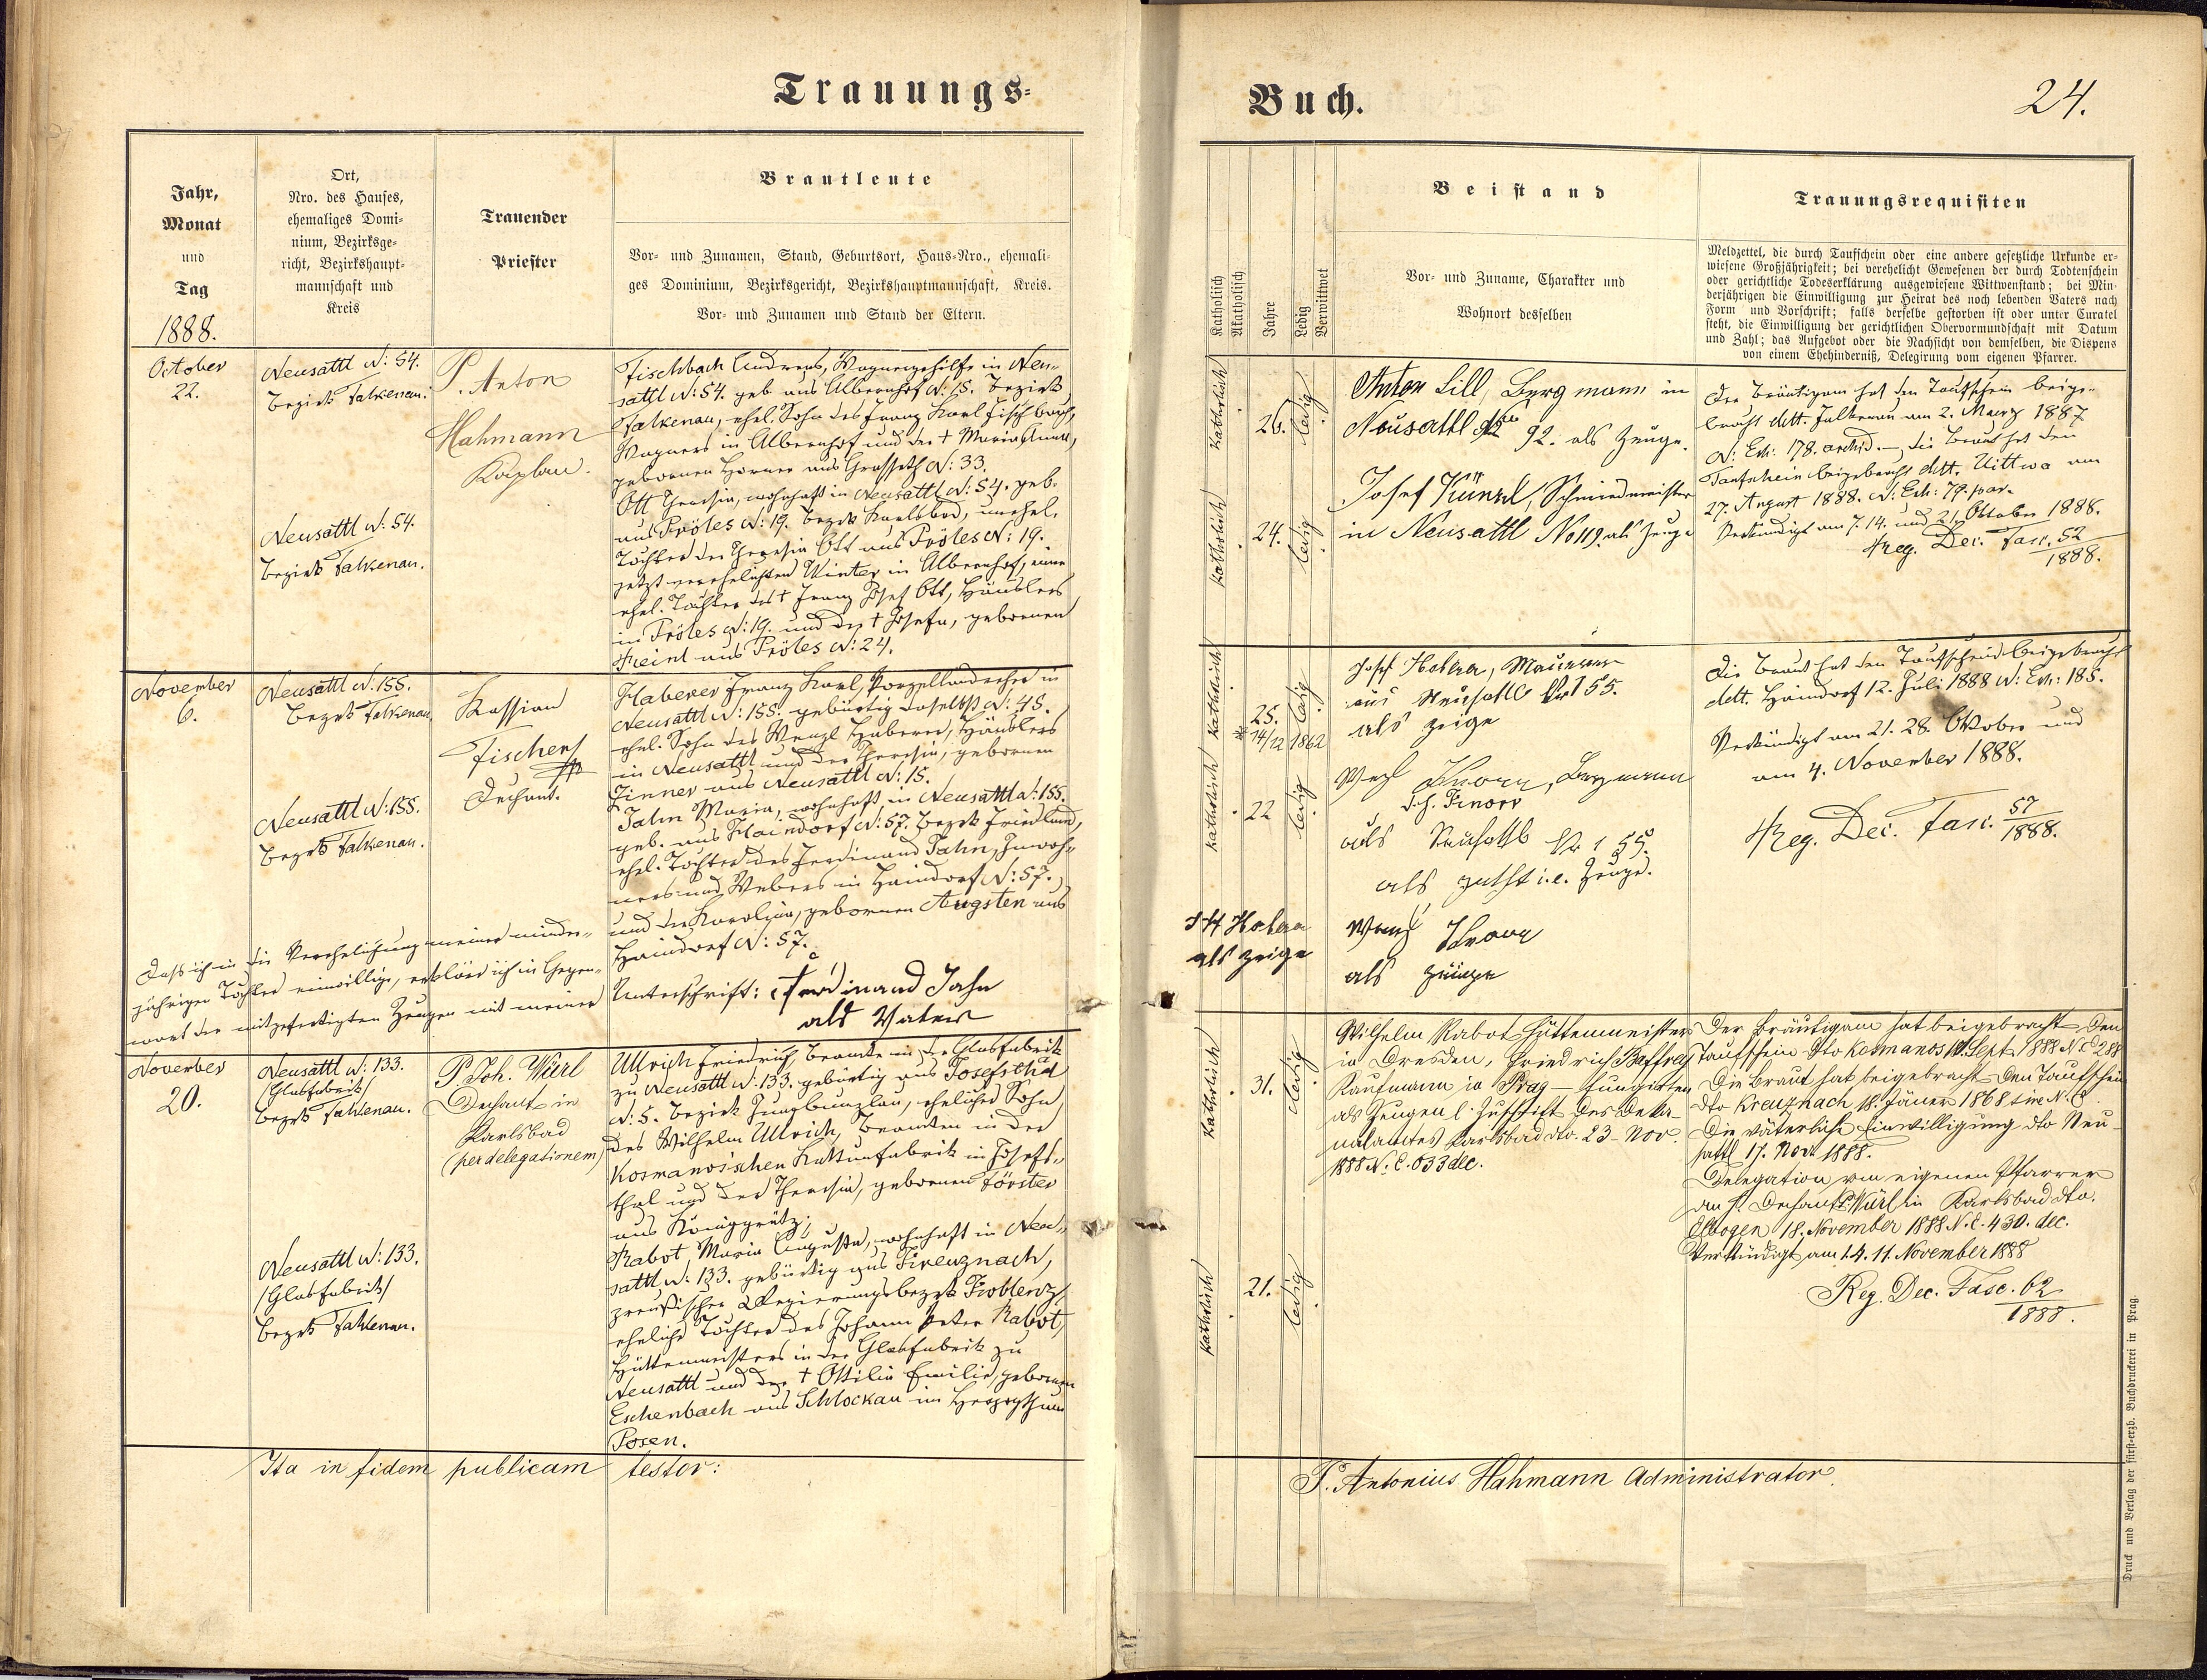 Trauungs-
Jahr,
Monat
und
Tag
1888.
Ort,
Nro. des Hauses,
ehemaliges Domi-
nium, Bezirksge-
richt, Bezirkshaupt-
mannschaft und
Kreis
Trauender
Priester
Brautleute
Vor- und Zunamen, Stand, Geburtsort, Haus-Nro., ehemali-
ges Dominium, Bezirksgericht, Bezirkshauptmannschaft, Kreis.
Vor- und Zunamen und Stand der Eltern.
October
22.
Neusattl N: 54.
Bezirk Falkenau.
Neusattl N: 54.
Bezirk Falkenau.
P. Anton
Hahmann
Kaplan.
Fischbach Andreas, Wagnergehilfe in Neu-
sattl N: 54. geb. aus Albernhof N: 15. Bezirk
Falkenau, ehel. Sohn des Franz Karl Fischbach,
Wagners in Albernhof und der † Maria Anna,
gebornen Horner aus Grasseth N: 33.
Ott Theresia, wohnhaft in Neusattl N: 54. geb.
aus Pröles N: 19. Bezirk Karlsbad, unehel.
Tochter der Theresia Ott aus Pröles N: 19.
jetzt verehelichten Winter in Albernhof, einer
ehel. Tochter des † Franz Josef Ott, Häuslers
in Pröles N: 19. und der † Josefa, gebornen
aus Pröles N: 24.
November
6.
Neusattl N: 155.
Bezirk Falkenau.
Neusattl N: 155.
Bezirk Falkenau.
Kassian
Fischer
Dechant.
Haberer Franz Karl, Porzellandreher in
Neusattl N: 155. gebürtig daselbst N: 45.
ehel. Sohn des Wenzl Haberer, Häuslers
in Neusattl und der Theresia, gebornen
Zinner aus Neusattl N: 15.
Jahn Maria, wohnhaft in Neusattl N: 155.
geb. aus Haindorf N: 57. Bezirk Friedland,
ehel. Tochter des Ferdinand Jahn, Inwoh-
ners und Webers in Haindorf N: 57.
und der Karolina, gebornen Augsten aus
Haindorf N: 57.
Daß ich in die Verehelichung meiner minder-
jährigen Tochter einwillige, erkläre ich in Gegen-
wart der mitgefertigten Zeugen mit meiner
Unterschrift: Ferdinand Jahn
als Vater
November
20.
Neusattl N: 133.
/Glasfabrik/
Bezirk Falkenau.
Neusattl N: 133.
/Glasfabrik/
Bezirk Falkenau.
P. Joh. Würl
Dechant in
Karlsbad
(per delegationem)
Ullrich Friedrich, Beamte in der Glasfabrik
zu Neusattl N: 133. gebürtig aus
N: 5. Bezirk Jungbunzlau, ehelicher Sohn
des Wilhelm Ullrich, Beamten in der
Kosmanos'schen Kattunfabrik in Josefs-
thal und der Theresia, gebornen Förster
aus Königgrätz;
Rabot Maria Augusta, wohnhaft in Neu-
sattl N: 133. gebürtig aus Kreuznach,
preußischer Regierungsbezirk Koblenz,
eheliche Tochter des Johann Peter Rabot,
Hüttenmeisters in der Glasfabrik zu
Neusattl und der † Ottilia Emilie, gebornen
Eschenbach aus Schlockau im Herzogthum
Posen.
Ita in fidem publicam testor:
Buch.
24.
Katholisch
Akatholisch
Jahre
Ledig
Verwittwet
Beistand
Vor- und Zuname, Charakter und
Wohnort desselben
Trauungsrequisiten
Meldzettel, die durch Taufschein oder eine andere gesetzliche Urkunde er-
wiesene Großjährigkeit; bei verehelicht Gewesenen der durch Todtenschein
oder gerichtliche Todeserklärung ausgewiesene Wittwenstand; bei Min-
derjährigen die Einwilligung zur Heirat des noch lebenden Vaters nach
Form und Vorschrift; falls derselbe gestorben ist oder unter Curatel
steht, die Einwilligung der gerichtlichen Obervormundschaft mit Datum
und Zahl; das Aufgebot oder die Nachsicht von demselben, die Dispens
von einem Ehehinderniß, Delegirung vom eigenen Pfarrer.
katholisch
26.
ledig
katholisch
24.
ledig
Anton Lill, Bergmann in
Neusattl No 92. als Zeuge.
Josef Künzl, Schmiedmeister
in Neusattl No 119. als Zeuge
Der Bräutigam hat den Taufschein beige-
bracht dtt. Falkenau am 2. März 1887
N: Exh: 178. archid. - die Braut hat den
Taufschein beigebracht dtt. Zittwa am
27. August 1888. N: Exh: 79. par.
Verkündigt am 7. 14. und 21. Oktober 1888.
Reg. Dec. Fasc. 52
1888.
katholisch
25.
14/12 1862
ledig
katholisch
22
ledig
Josef Habera, Maurer
aus Neusattl Nr 155.
als zeige
Wenzl Knorr, Bergmann
d.h. Knorr
aus Neusattl Nr 155.
als i.e. Zeuge.
Habera
als zeige
Wenzl Knorr
als
Die Braut hat den Taufschein beigebracht
dtt. Haindorf 12. Juli 1888 N: Exh: 185.
Verkündigt am 21. 28. Oktober und
am 4. November 1888.
Reg. Dec. Fasc. 57
1888.
katholisch
31.
ledig
katholisch
21.
ledig
Wilhelm Rabot Hüttenmeister
in Dresden, Friedrich
Kaufmann in Prag - fungirten
als Zeugen l. Zuschrift des Deka-
nalamtes Karlsbad dto. 23. Nov.
1888 N. E. 633 dec.
Der Bräutigam hat beigebracht den
Taufschein dto Kosmanos 10. Sept. 1888 N.E. 288
Die Braut hat beigebracht den Taufschein
dto Kreuznach 18. Jäner 1868 sine N. E.
Die väterliche Einwilligung dto Neu-
sattl 17. Nov. 1888.
Delegation vom eigenen Pfarrer
an H. Dechant Würl in Karlsbad dto.
Elbogen 18. November 1888 N. E. 430. dec.
Verkündigt am 1. 4. 11. November 1888
Reg. Dec. Fasc. 62
1888.
P. Antonius Hahmann Administrator
Druck und Verlag der fürst-erzb. Buchdruckerei in Prag.